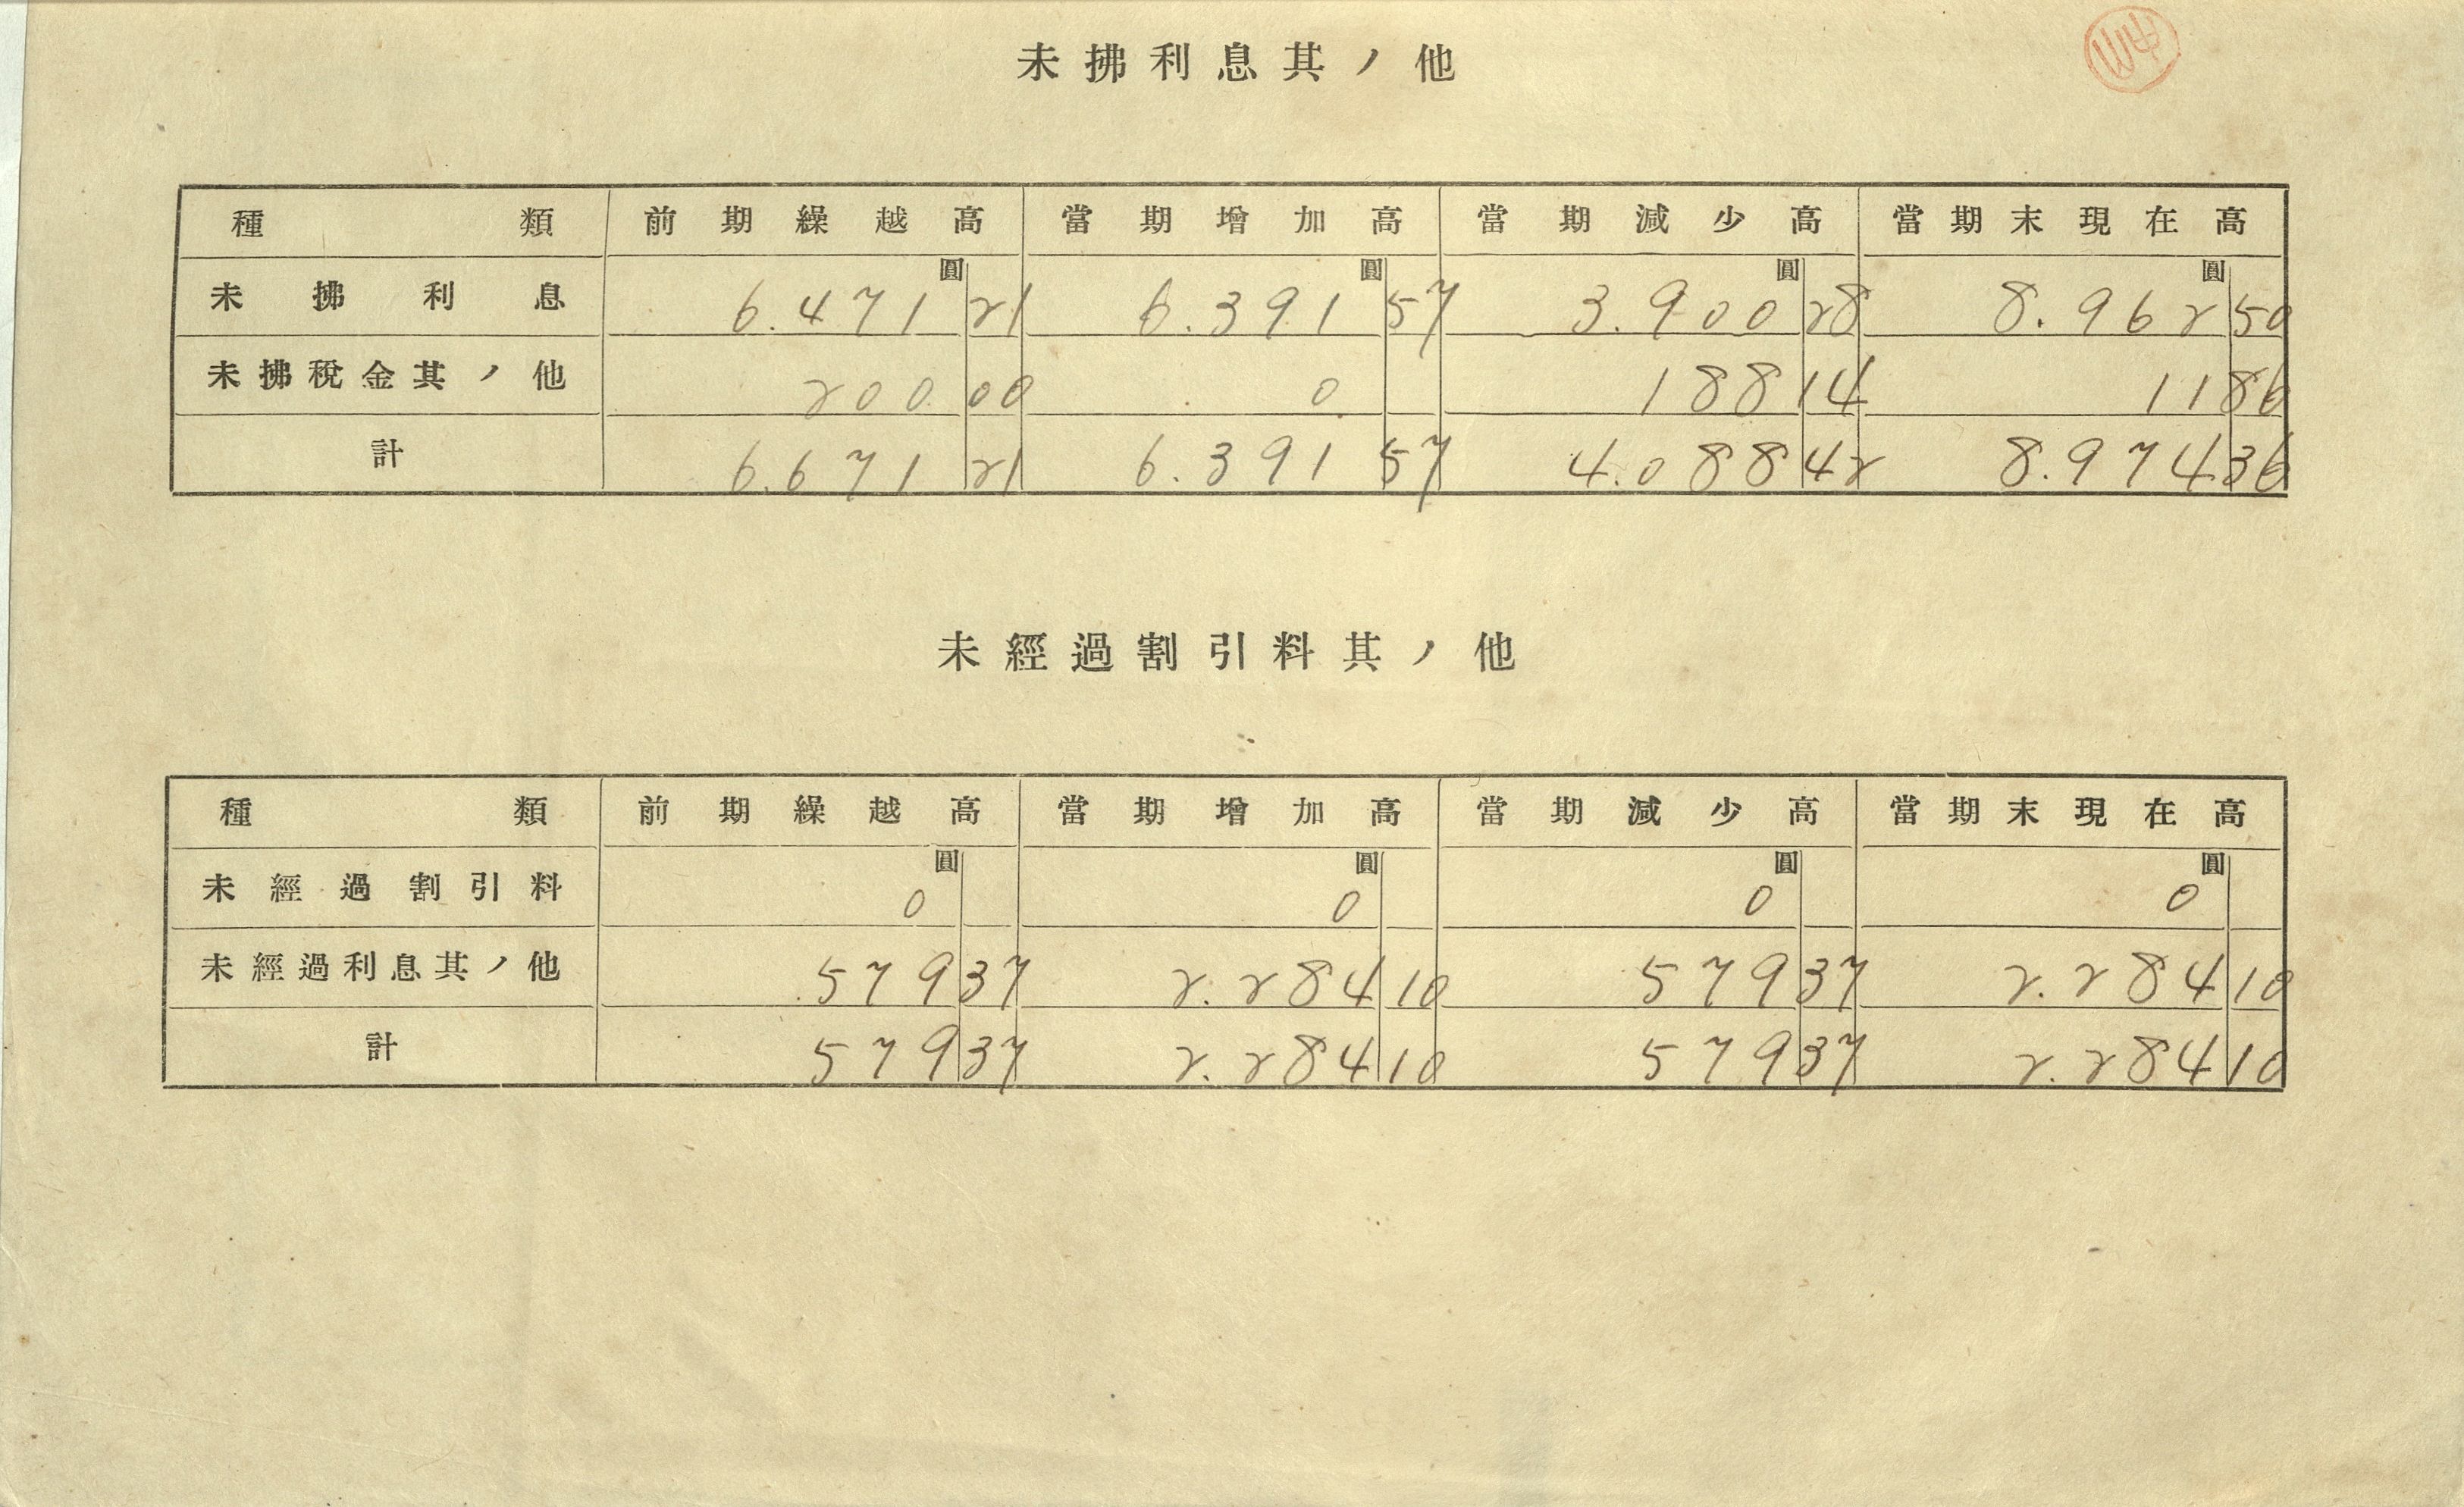 未拂利息其ノ他
種類 前期繰越高 當期增加高 當期減少高 當期末現在高
圓 圓 圓 圓
未拂利息 6.471 21 6.391 57 3.900 28 8.962 50
未拂稅金其ノ他 200 00 0 188 14 11 86
計 6.671 21 6.391 57 4.088 42 8.974 36
未經過割引料其ノ他
種類 前期繰越高 當期增加高 當期減少高 當期末現在高
圓 圓 圓 圓
未經過割引料 0 0 0 0
未經過利息其ノ他 579 37 2.284 10 579 37 2.284 10
計 579 37 2.284 10 579 37 2.284 10